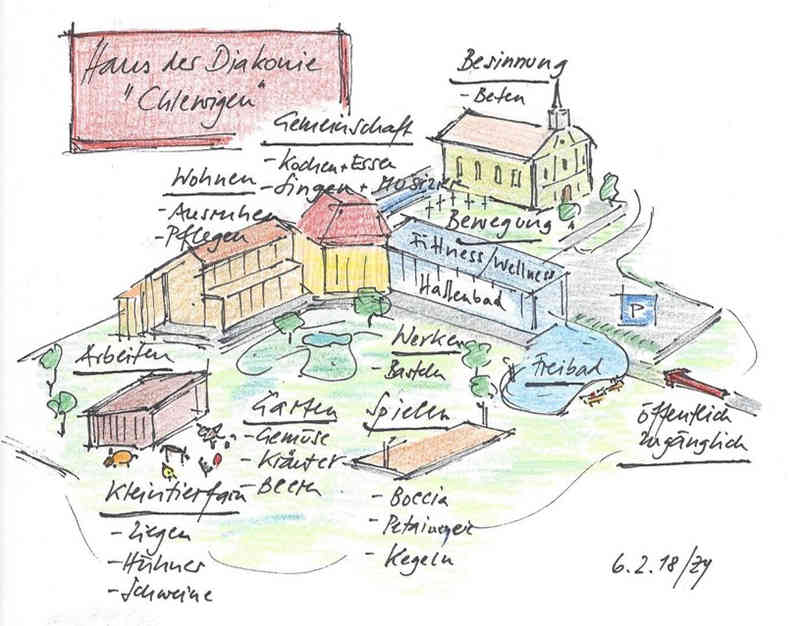 Haus der Diakonie
"Chlewigen"
Besinnung
- Beten
Gemeinschaft
- Kochen + Essen
- Singen + Musizieren
Wohnen
- Ausruhen
- Pflegen
Bewegung
Fittness / Wellness
Hallenbad
P
Arbeiten
Werken
- Basteln
Freibad
Garten
- Gemüse
- Kräuter
- Beeren
Spielen
- Boccia
- Petanque
- Kegeln
öffentlich
zugänglich
Kleintierfarm
- Ziegen
- Hühner
- Schweine
6.2.18/zy